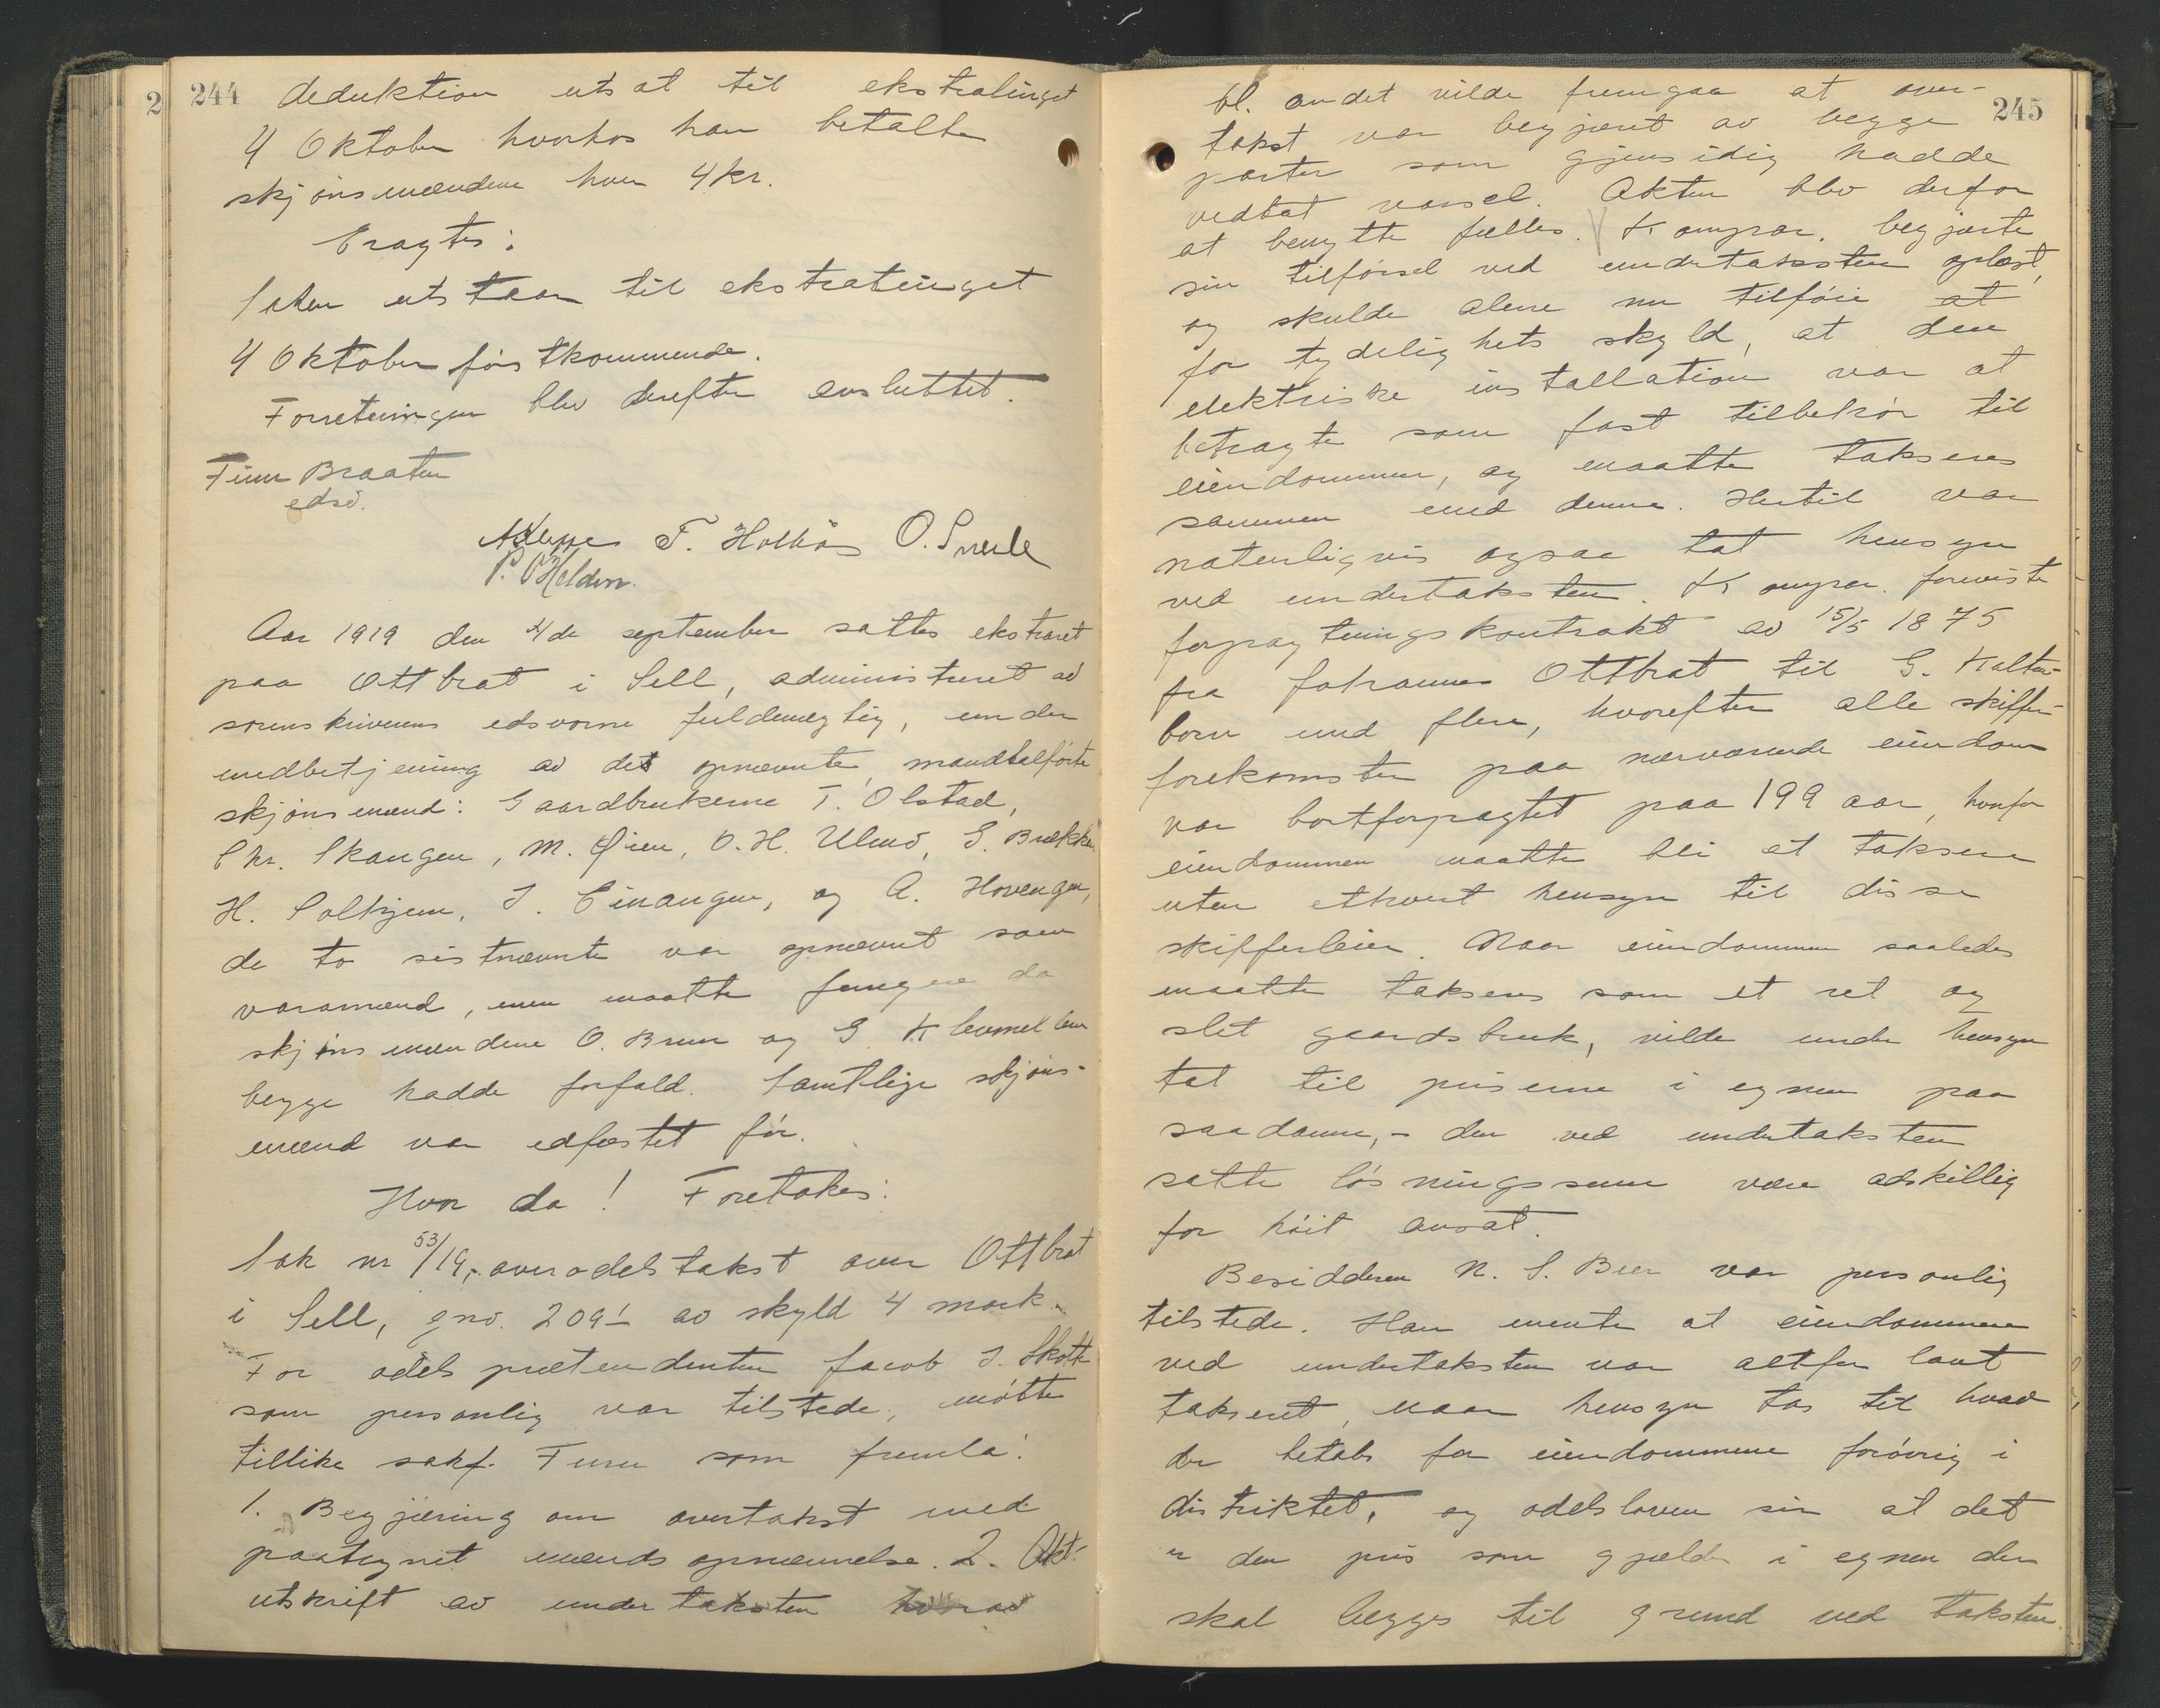 2
244
deduktion utsat til ekstratinget
4 Oktober hvorhos han betalte
skjønsmændene hver 4 kr.
Eragtes:
Saken utstaar til ekstratinget
4 Oktober førstkommende.
Forretningen blev derefter avsluttet.
Finn Braaten
edsv.
A Kleppe T. Holhös O. Snerle
P. O Holdin.
Aar 1919 den 4de september sattes ekstraret
paa Ottbrat i Sell, administreret av
sorenskriverens edsvorne fuldmægtig, under
medbetjening av det opnævnte, mandtalførte
skjønsmænd: Gaardbrukerne T. Olstad,
Chr. Skaugen, M. Øien, O. H. Ulmo, G. Brække
H. Solhjem, J. Einangen, og A. Hovengen,
de to sistnævnte var opnævnt som
varamænd, men maatte fungere da
skjønsmændene O. Brun og G
begge hadde forfald. Samtlige skjøns-
mænd var edfæstet før.
Hvor da! Foretokes:
Sak nr 53/19, overodelstakst over Ottbrat
i Sell, gno. 209¹ av skyld 4 mark.
For odelsprætendenten Jacob J. Skotte
som personlig var tilstede, møtte
tillike sakf. Furu som fremla:
1. Begjæring om overtakst med
paategnet mændsopnævnelse. 2. Akt-
utskrift av undertaksten hvorav
245
bl. andet vilde fremgaa at over-
takst var begjæret av begge
parter som gjensidig hadde
vedtat varsel. Akten blev derfor
at benytte fælles. Kompar. begjærte
sin tilførsel ved undertaksten oplæst,
og skulde alene nu tilføie at
for tydelighets skyld, at den
elektriske installation var at
betragte som fast tilbehør til
eiendommen, og maatte takseres
sammen med denne. Hertil var
naturligvis ogsaa tat hensyn
ved undertaksten. Kompar. foreviste
forpagtningskontrakt av 15/5 1875
fra Johannes Ottbrat til G. Kalten-
born med flere, hvorefter alle skiffer-
forekomster paa nærværende eiendom
var bortforpagtet paa 199 aar, hvorfor
eiendommen maatte bli at taksere
uten ethvert hensyn til disse
skifferleier. Naar eiendommen saaledes
maatte takseres som et ret og
slet gaardsbruk, vilde under hensyn
tat til priserne i egnen paa
saadanne,- den ved undertaksten
satte løsningssum være adskillig
for høit ansat.
Besidderen N. S. Beer var personlig
tilstede. Han mente at eiendommen
ved undertaksten var altfor lavt
taksert, naar hensyn tas til hvad
der betales for eiendommene forøvrig i
distriktet, og odelsloven sier at det
er den pris som gjælder i egnen der
skal lægges til grund ved taksten.